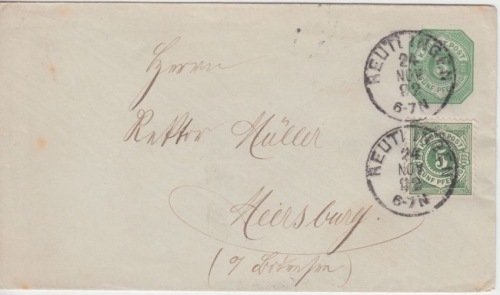 Herrn
Rektor Müller
Meersburg
REUTLINGEN
24
NOV
92
6-7N
POST
FÜNF PFENNIG
REUTLINGEN
24
NOV
92
6-7N
POST
5
FÜNF PFENNIG